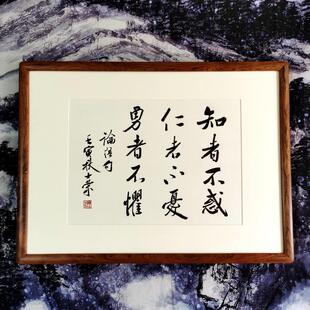 知者不惑
仁者不憂
勇者不懼
論語句
壬寅秋